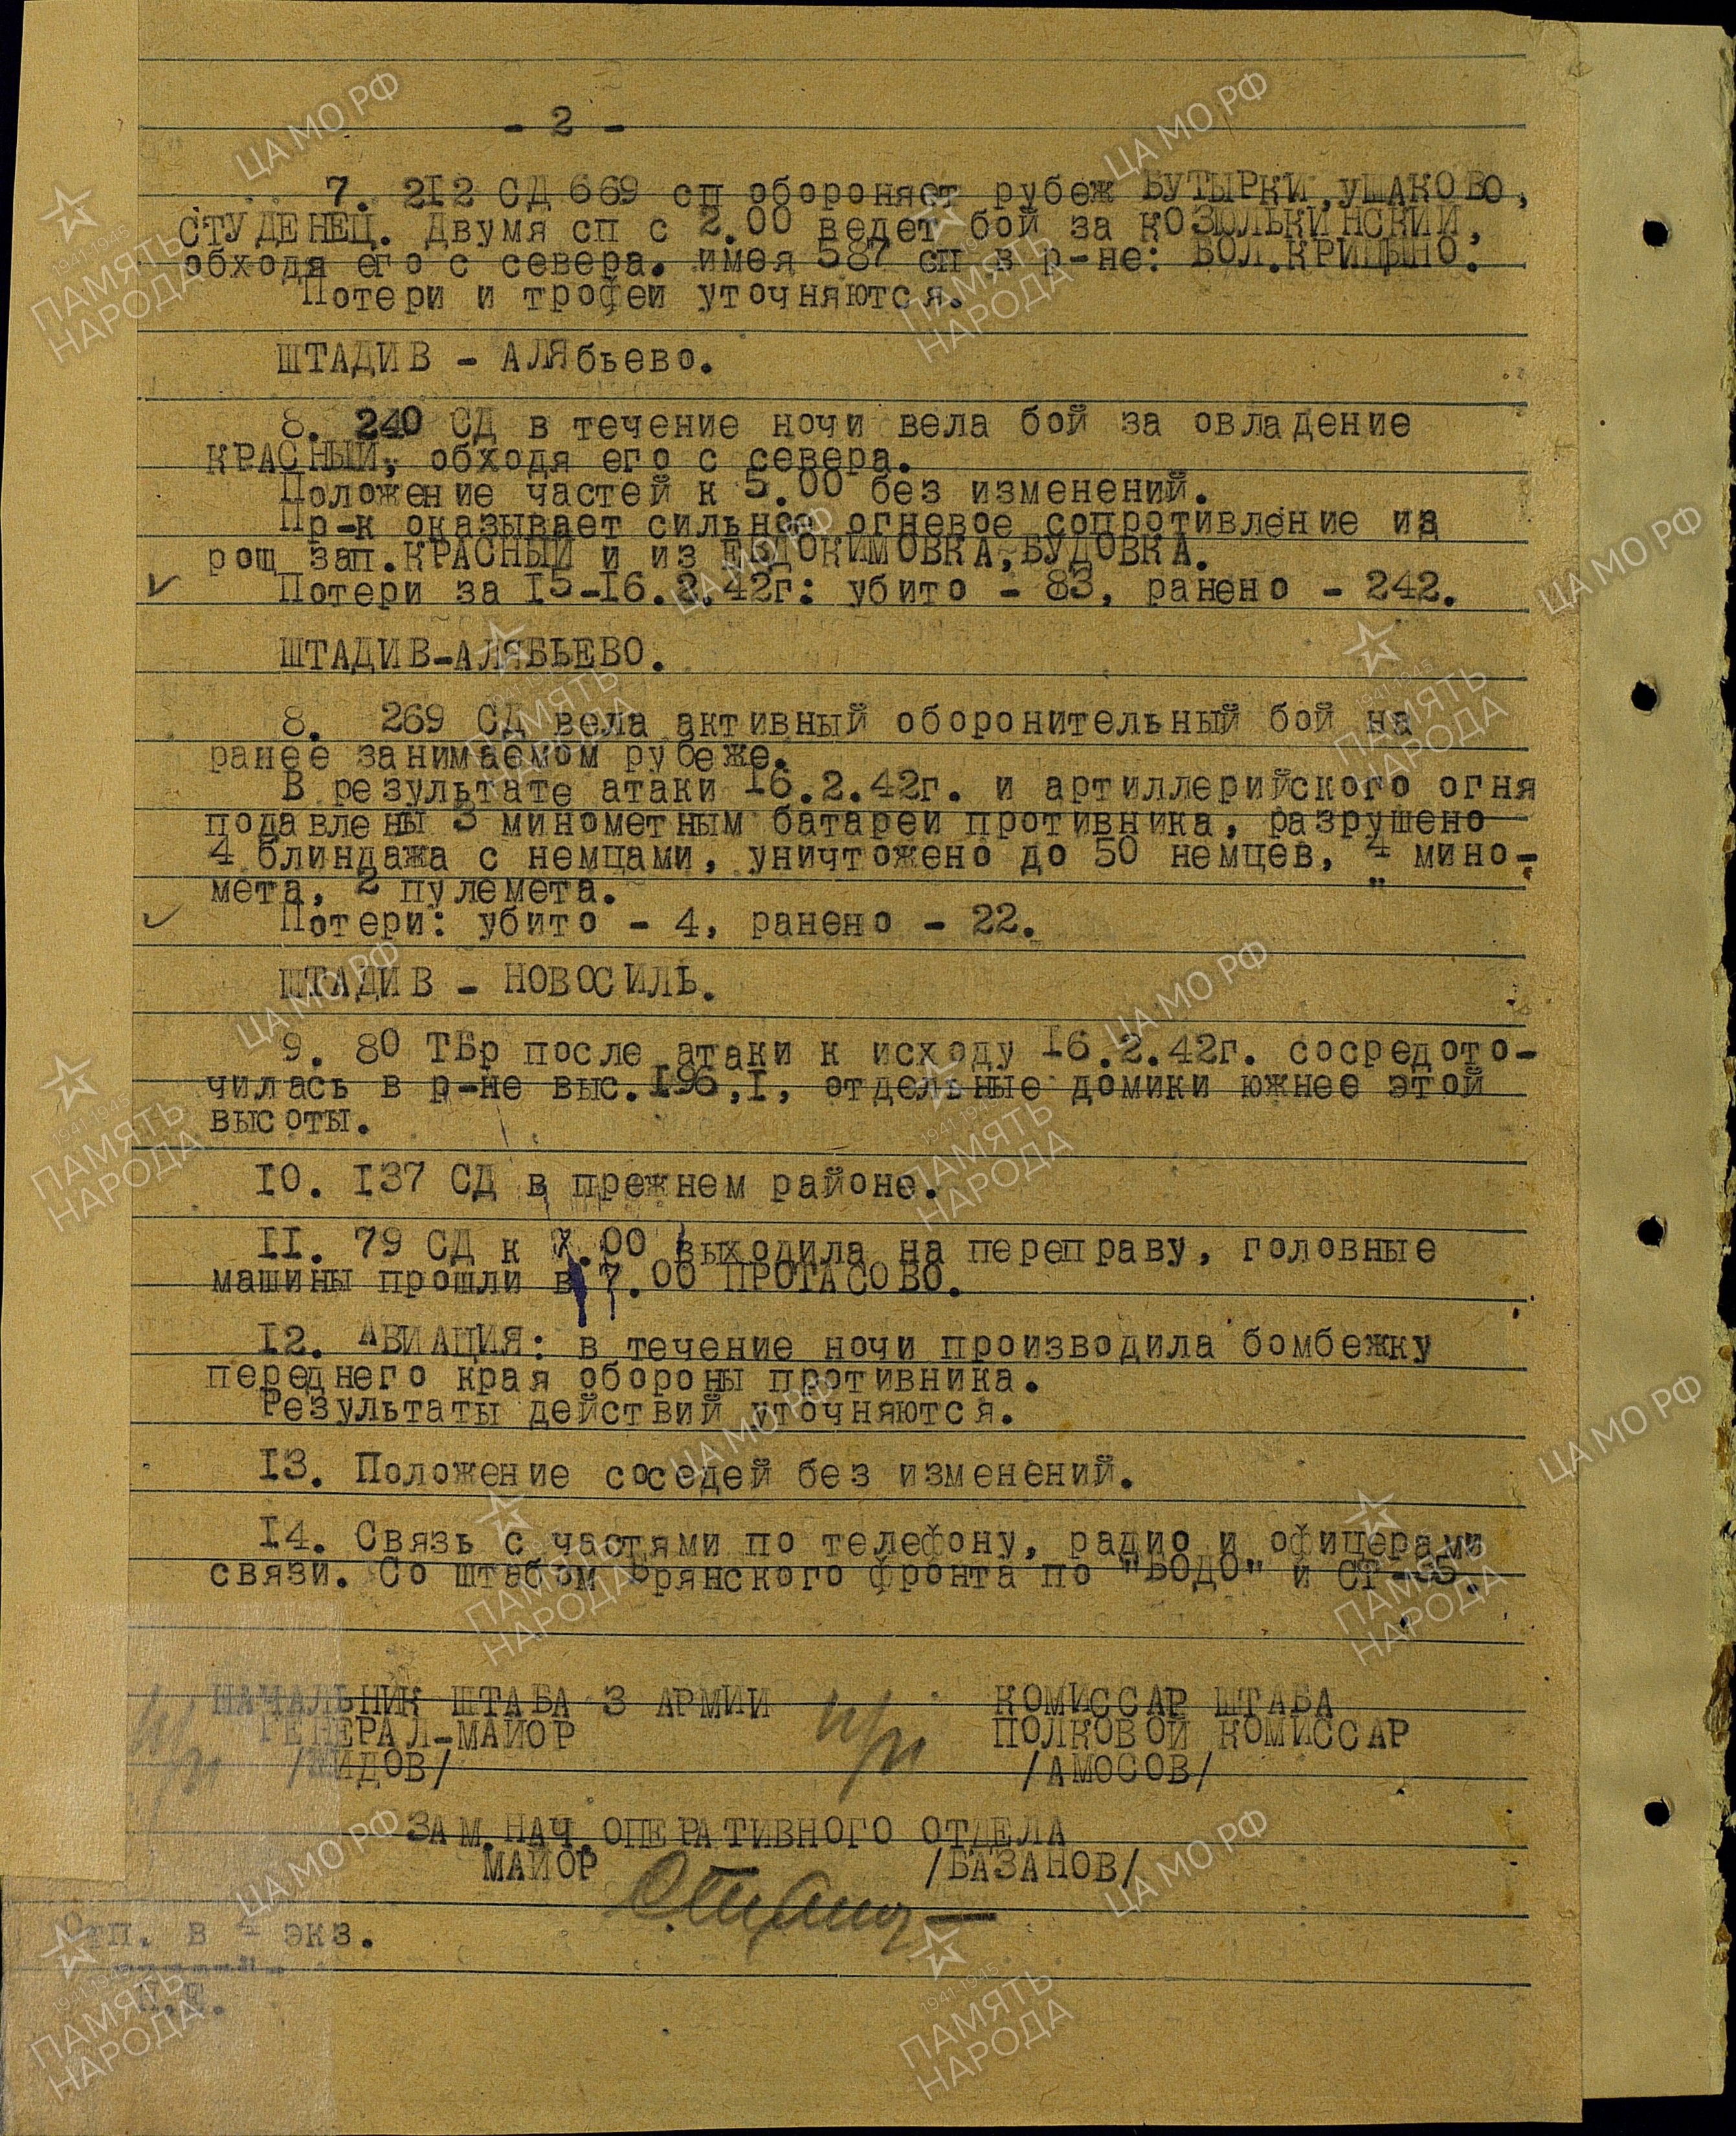 - 2 -
7. 212 СД 669 сп обороняет рубеж БУТЫРКИ, УШАКОВО,
СТУДЕНЕЦ. Двумя сп с 2.00 ведет бой за КОЗЮЛЬКИНСКИЙ,
обходя его с севера. имея 587 сп в р-не: БОЛ.КРИЦЫНО.
Потери и трофеи уточняются.
ШТАДИВ - АЛЯбьево.
8. 240 СД в течение ночи вела бой за овладение
КРАСНЫЙ, обходя его с севера.
Положение частей к 5.00 без изменений.
Пр-к оказывает сильное огневое сопротивление из
рощ зап.КРАСНЫЙ и из ЕВДОКИМОВКА, БУДОВКА.
Потери за I5-I6.2.42г: убито - 83, ранено - 242.
ШТАДИВ-АЛЯБЬЕВО.
8. 269 СД вела активный оборонительный бой на
ранее занимаемом рубеже.
В результате атаки I6.2.42г. и артиллерийского огня
подавлены 3 минометным батареи противника, разрушено
4 блиндажа с немцами, уничтожено до 50 немцев, 4 мино-
мета, 2 пулемета.
Потери: убито - 4, ранено - 22.
ШТАДИВ - НОВОСИЛЬ.
9. 80 ТБр после атаки к исходу I6.2.42г. сосредото-
чилась в р-не выс.I96,I, отдельные домики южнее этой
высоты.
I0. I37 СД в прежнем районе.
II. 79 СД к 7.00 выходила на переправу, головные
машины прошли в 7.00 ПРОТАСОВО.
I2. АВИАЦИЯ: в течение ночи производила бомбежку
переднего края обороны противника.
Результаты действий уточняются.
I3. Положение соседей без изменений.
I4. Связь с частями по телефону, радио и офицерами
связи. Со штабом Брянского фронта по "БОДО" и СТ-35.
НАЧАЛЬНИК ШТАБА 3 АРМИИ п/п КОМИССАР ШТАБА
ГЕНЕРАЛ-МАЙОР ПОЛКОВОЙ КОМИССАР
/ЖИДОВ/ /АМОСОВ/
ЗАМ.НАЧ.ОПЕРАТИВНОГО ОТДЕЛА
МАЙОР /БАЗАНОВ/
Отп. в 4 экз.